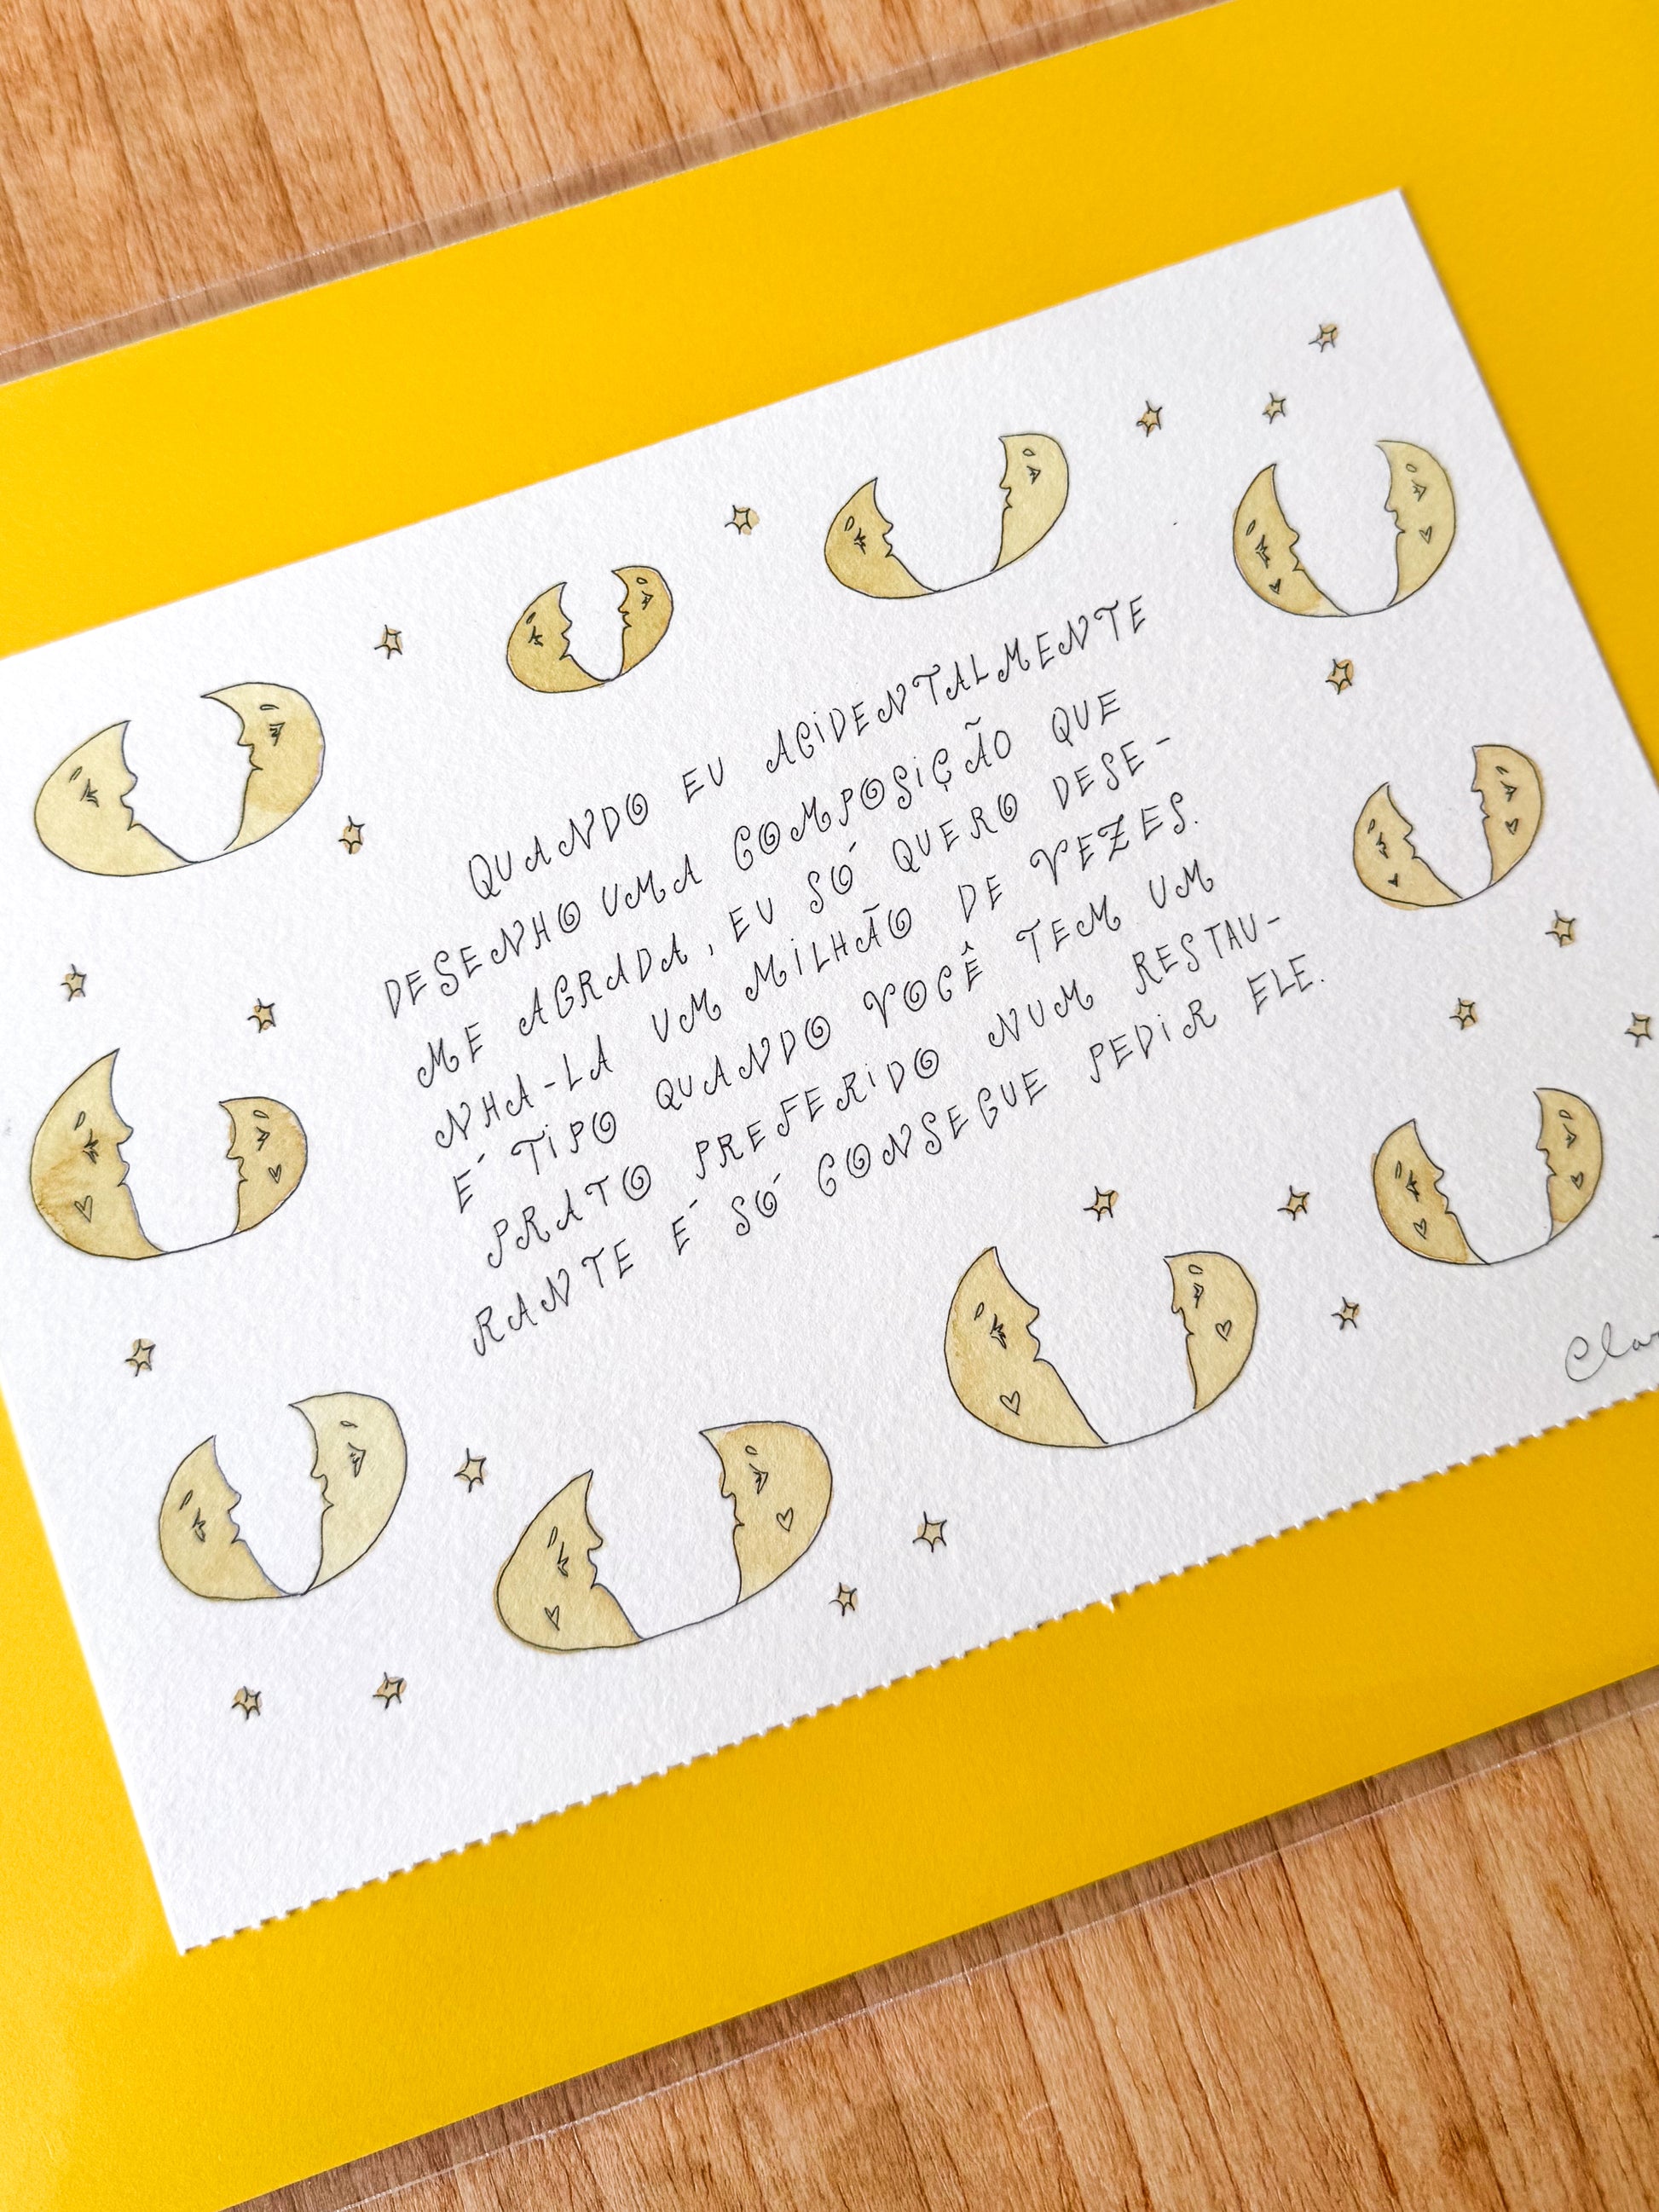 QUANDO EU ACIDENTALMENTE
DESENHO UMA COMPOSIÇÃO QUE
ME AGRADA, EU SÓ QUERO DESE-
NHA-LA UM MILHÃO DE VEZES.
É TIPO QUANDO VOCÊ TEM UM
PRATO PREFERIDO NUM RESTAU-
RANTE É SÓ CONSEGUE PEDIR ELE.